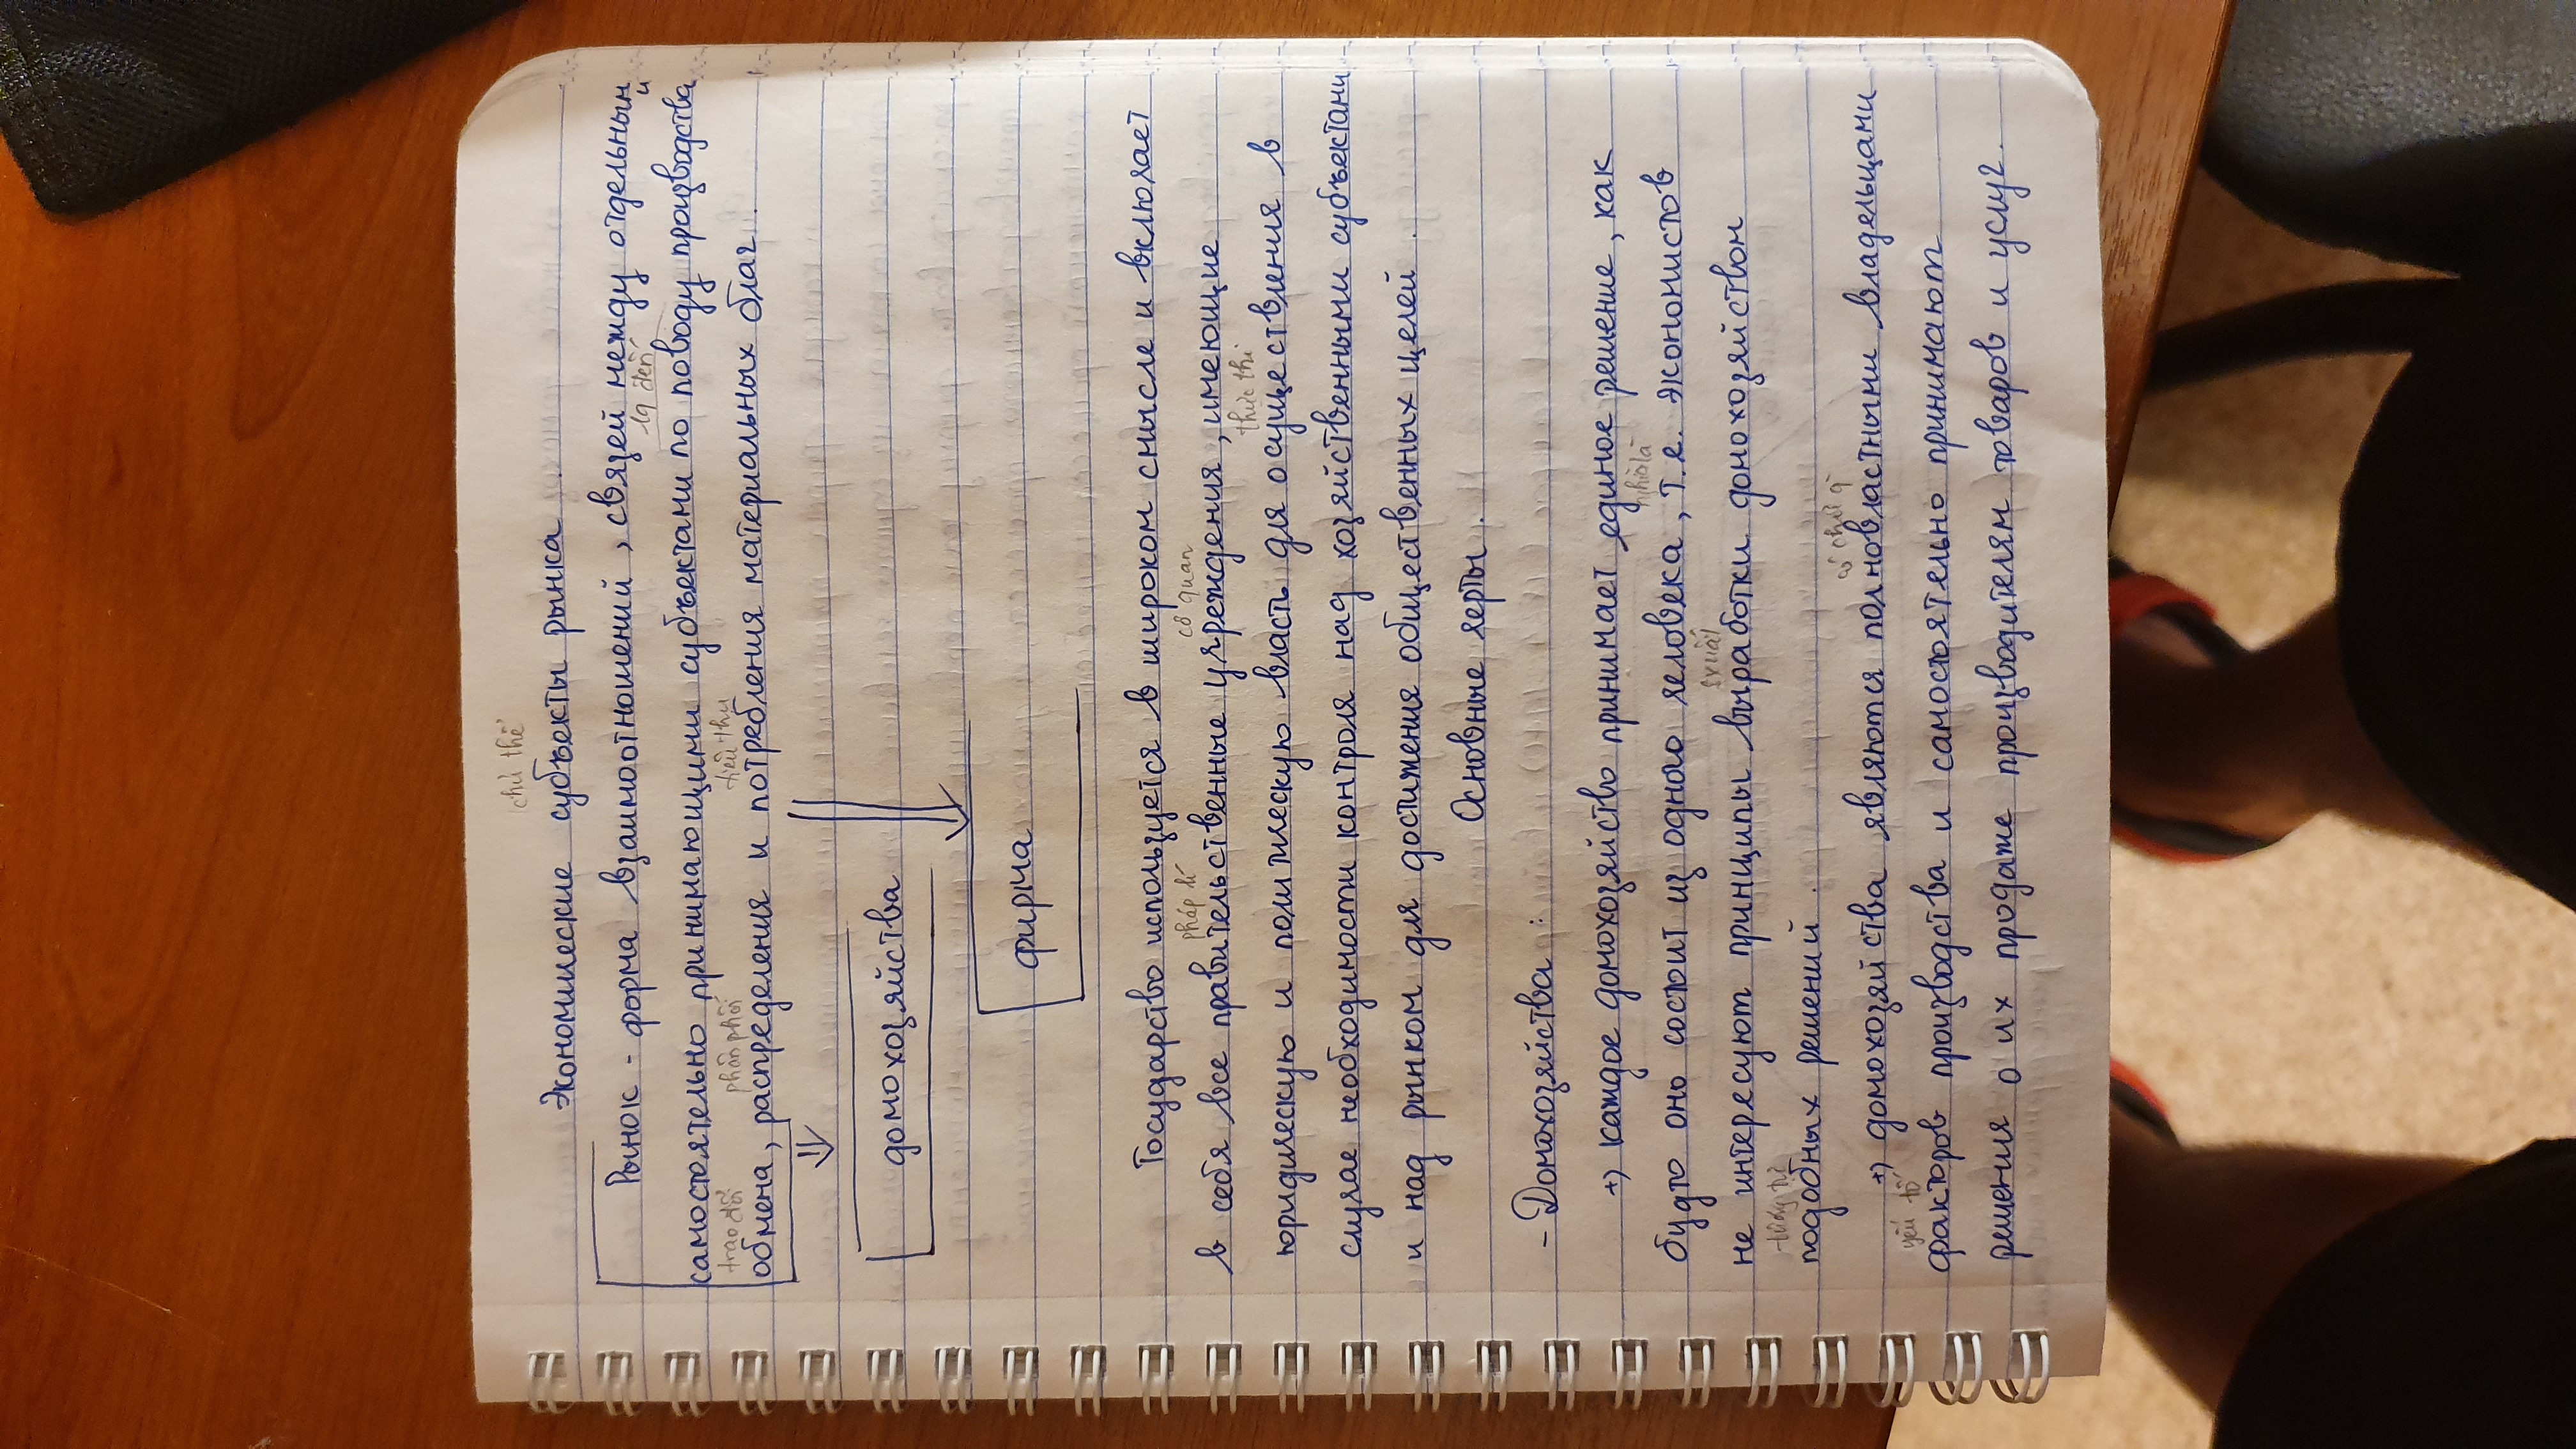 chủ thể
Экономические субъекты рынка
Рынок - форма взаимоотношений, связей между отдельным
и
lq đến
самостоятельно принимающими субъектами по поводу производства
trao đổi phân phối tiêu thụ
обмена, распределения и потребления материальных благ.
домохозяйства
фирма
Государство используется в широком смысле и включает
pháp lí cơ quan
в себя все правительственные учреждения, имеющие
thực thi
юридическую и политическую власть для осуществления в
случае необходимости контроля над хозяйственными субъектами
и над рынком для достижения общественных целей.
Основные черты.
- Домохозяйства :
+) каждое домохозяйство принимает единое решение, как
nghĩa là
будто оно состоит из одного человека, т.е. экономистов
sxuất
не интересуют принципы выработки домохозяйством
tương tự
подобных решений.
+) домохозяйства являются полновластными владельцами
yếu tố
факторов производства и самостоятельно принимают
решения о их продаже производителям товаров и услуг.